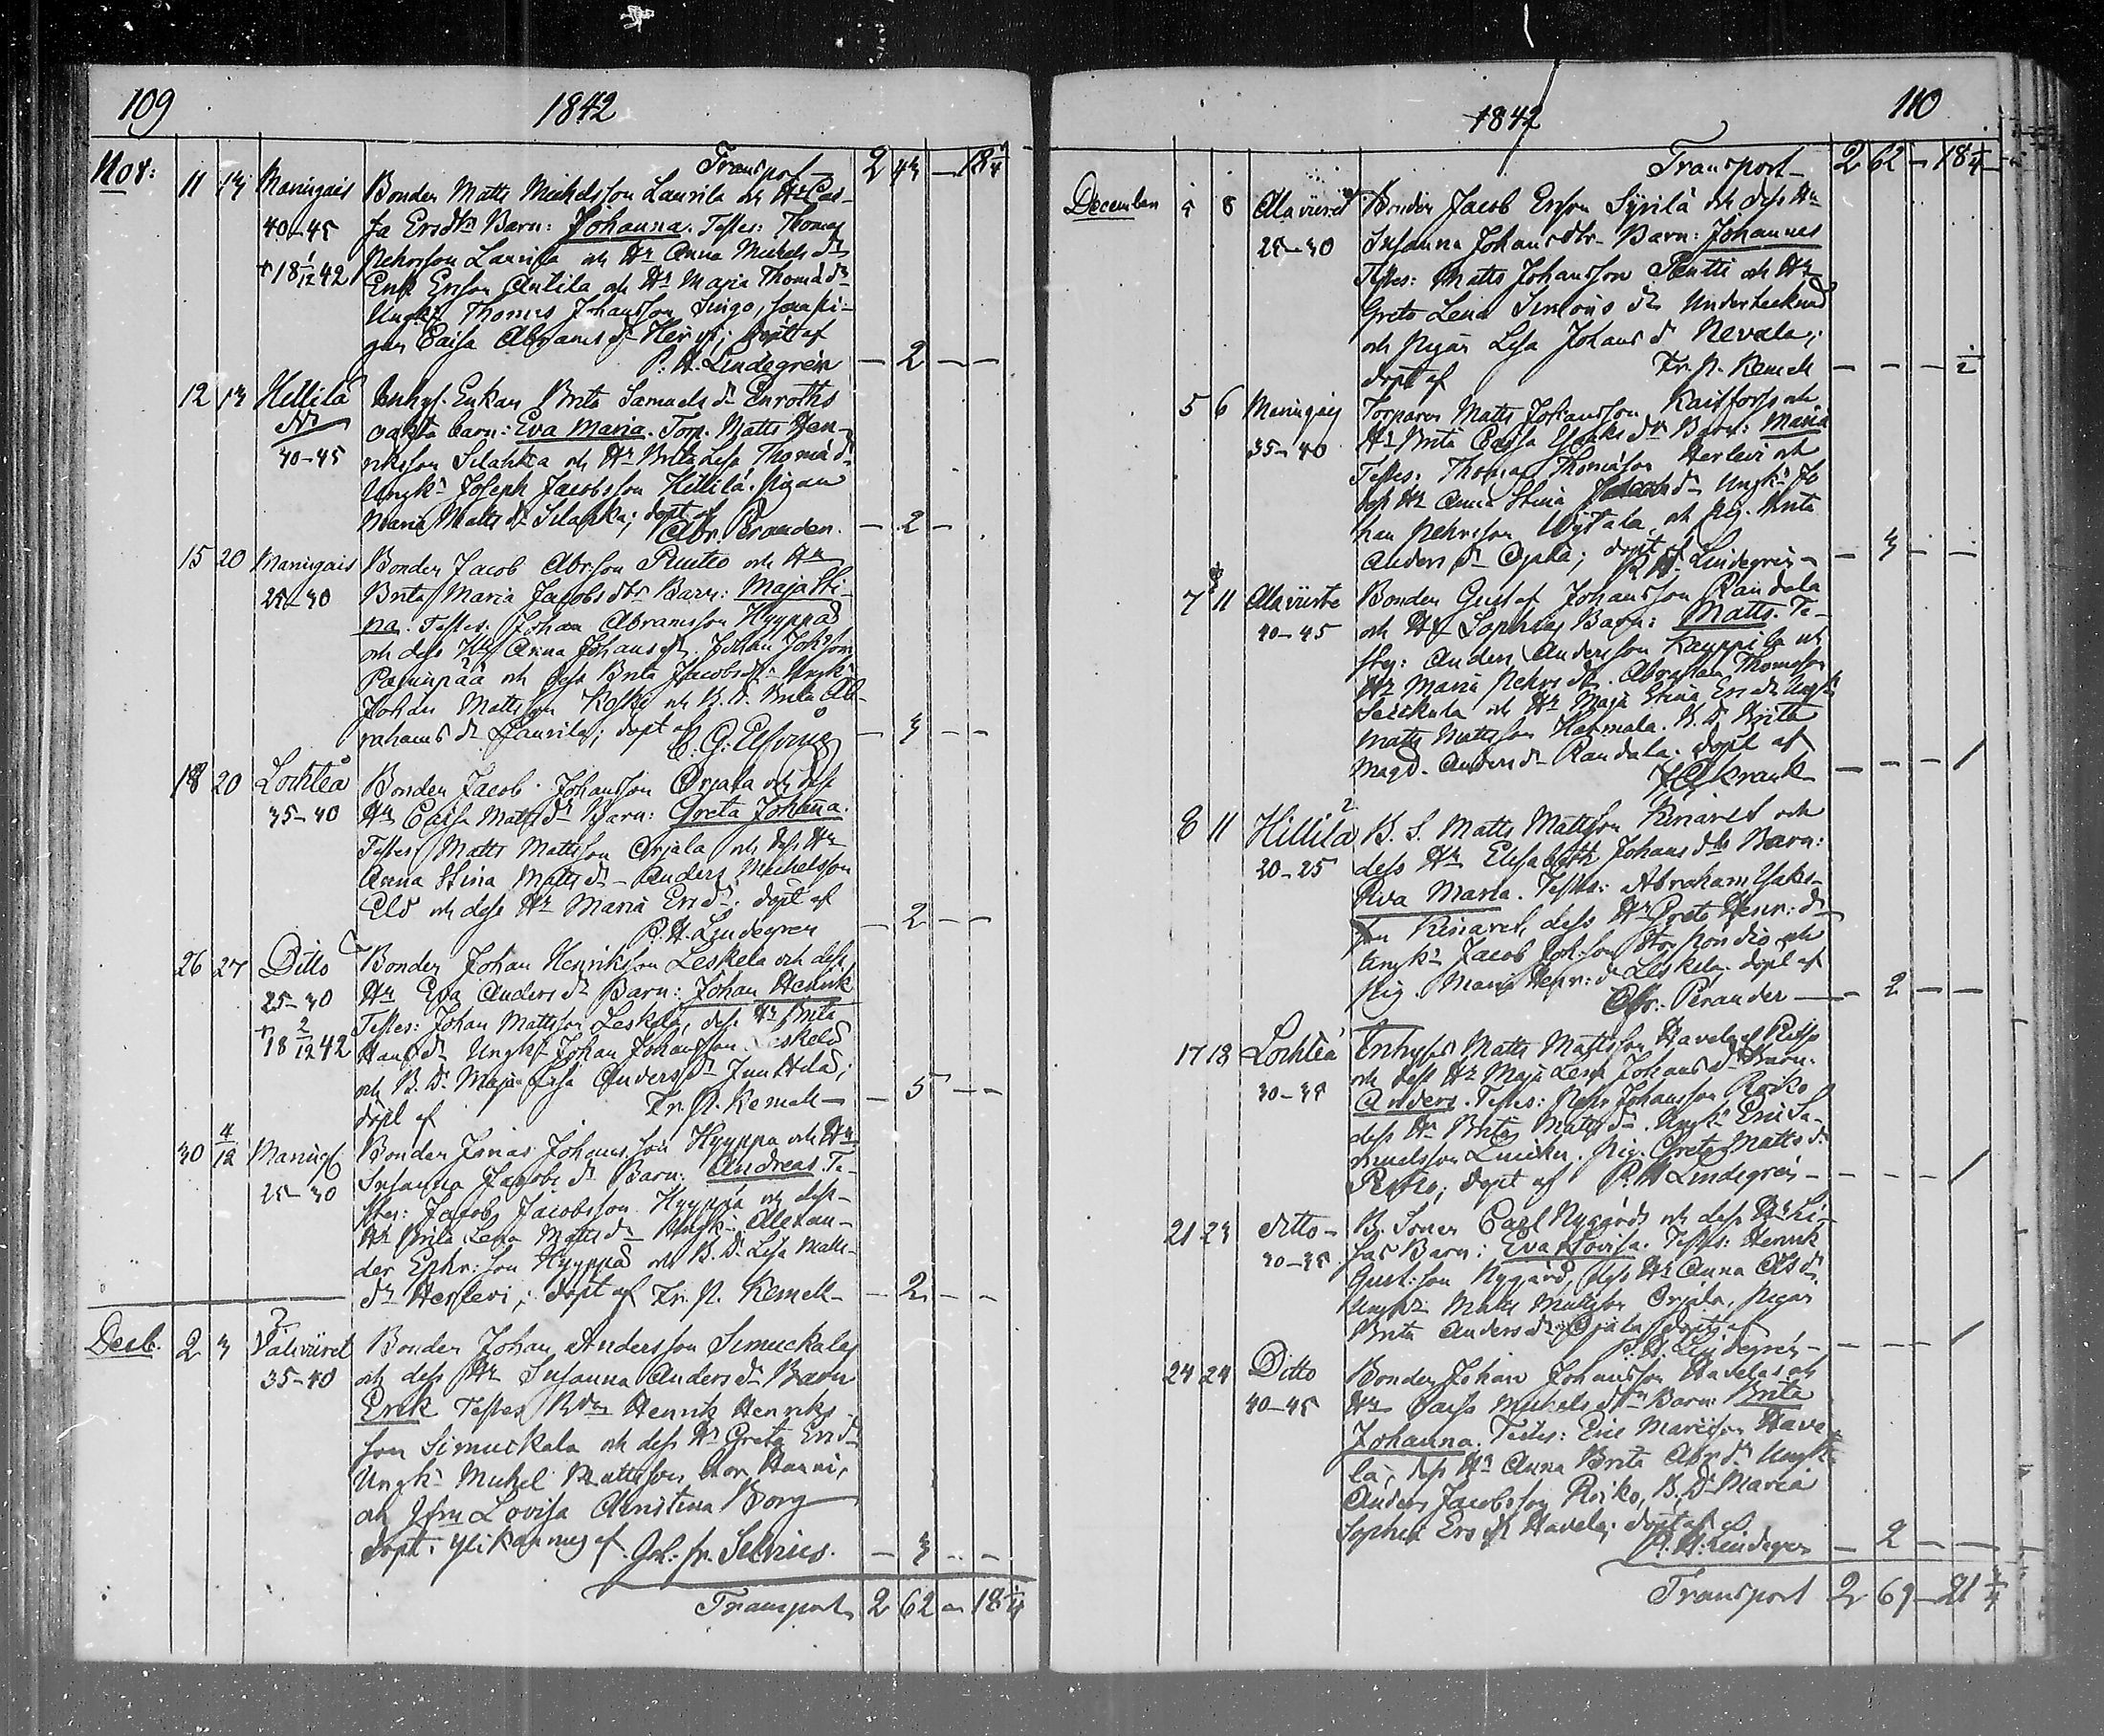 109 1842
Transport 2 43 — 18 1/4
Nov: 11 13 Maningais Bonden Matts Michelsson Laurila och Hu Cai-
40–45 sa Ersdtr Barn: Johanna. Testes: Thomas
† 18 1/12 42 Pehrsson Laurila och Hu Anna Michels dr
Erik Ersson Antila och Hu Maria Thomæ dr
Ungk: Thomas Johansson Singo, samt pi-
gan Caisa Abrams dr Herlevi; döpt af
P. H. Lindegrén — 2 — —
12 13 Hillilä Inhys. Enkan Brita Samuels dr Enroths
oäkta barn: Eva Maria. Torp. Matts Hen-
40–45 riksson Silahka och Hu Brita Lisa Thomæ dr
Ungk: Joseph Jacobsson Hillilä. Pigan
Maria Matts dr Silahka; döpt af
Abr. Perander. — 2 —
15 20 Maningais Bonden Jacob Abr:son Puutio och Hu
25–30 Brita Maria Jacobs dtr Barn: Maja Sti-
na. Testes: Johan Abramsson Hyyppä
och dess Hu Anna Johans dr. Johan Joh:son
Paninpää och dess Brita Jacobs dr Ungk:
Johan Mattsson Koski och B. d. Brita Ab-
rahams dr Laurila; döpt af
C. G. Elfving — 3 — —
18 20 Lochteå Bonden Jacob Johansson Orjala och dess
35–40 Hu Caisa Matts dr Barn: Greta Johanna.
Testes: Matts Mattsson Orjala och dess Hu
Anna Stina Matts dr – Anders Michelsson
Eld och dess Hu Maria Ersd: döpt af
P. H. Lindegren — 2 — —
26 27 Ditto Bonden Johan Henriksson Leskelä och dess
25–30 Hu Eva Anders dr Barn: Johan Henrik
† 18 2/12 42 Testes: Johan Mattsson Leskelä, dess Hu Brita
Hans dr Ungk: Johan Johansson Leskelä
och B. Dr Maja Lisa Anders dr Junttila;
döpt af Fr. P. Kemell — 5 — —
30 4/12 Maning: Bonden Jonas Johansson Hyyppä och Hu
25–30 Susanna Jacobs dr Barn: Andreas. Te-
stes: Jacob Jacobsson Hyyppä och dess
Hu Brita Lena Matts dr Ungk: Alexan-
der Ephr: son Hyyppä och B. Dr Lisa Matts-
dr Herlevi; döpt af Fr. P. Kemell — 2 — —
Decb. 2 3 Väliviiret Bonden Johan Andersson Simuckala
35–40 och dess Hu Susanna Anders dr Barn
Erik Testes Bdn Henrik Henriks-
son Simuckala och dess Hu Greta Ersd:
Ungk: Michel Mattsson Stor Hanni,
och Jfru Lovisa Christina Borg
döpt i Ylikannus af Joh: fr. Selenius. — 3 — —
Transport 2 62 — 18 1/4
1842 110
Transport 2 62 — 18 1/4
December 5 8 Alaviiret Bonden Jacob Ersson Syrilä och dess Hu
25–30 Susanna Johans dtr Barn: Johannes
Testes: Matts Johansson Pentti och Hu
Greta Lena Simons dr Undertecknad
och Pigan Lisa Johans dr Nevala;
döpt af Fr. P. Kemell — — — 1/2
5 6 Maningais Torparen Matts Johansson Kaitfors och
35–40 Hu Brita Caisa Isaks dr Barn: Maria
Testes: Thomas Thomasson Herlevi och
dess Hu Anna Stina dr Ungk: Jo
han Pehrsson och Pig. Brita
Anders dr Ojala; döpt af
P. H. Lindegrén — 3 — —
7 11 Alaviirte Bonden Gustaf Johansson Randala
40–45 och Hu Sophias Barn: Matts. Te-
stes: Anders Andersson Kauppila och
Hu Maria Pehrs dr. Abraham Thomasson
och Hu Maja Stina Ers dr Ungk:
Matts Mattsson Harmala. B. Dr Brita
Magd. Anders dr Randala. döpt af
Krank — — — 1
8 11 Hillilä B. S. Matts Mattsson Kinaret och
20–25 dess Hu Elisabeth Johans dtr Barn:
Eva Maria. Testes: Abraham Isaks-
son Kinaret, dess Hu Greta Henr: dr
Ungk: Jacob Joh:son Stor Pöndiö och
Pig. Maria Henr: dr Leskelä. döpt af
Abr. Perander — — 2 — —
17 18 Lochteå Inhyses Matts Mattsson Havela
30–35 och dess Hu Maja Lena Johans dr Barn:
Anders. Testes: Pehr Johansson Roiko
dess Hu Brita Matts dr. Ungk: Eric Sa-
muelsson Pig. Greta Matts dr
Roiko; döpt af P. H. Lindegrén — — — 1
21 23 ditto – B. Sonen Carl Nygårds och dess Hu Li-
30–35 sas Barn: Eva Lovisa. Testes: Henrik
Gust:son Nygård, dess Hu Anna Ols dr.
Ungk: Matts Mattsson Orjala, Pigan
Brita Anders dr Ojala döpt af
P. H. Lindegrén — — — 1
24 24 Ditto Bonden Johan Johansson Havelas och
40–45 Hu Caisa Michels dtr Barn Brita
Johanna. Testes: Eric Marcisson Have-
la, dess Hu Anna Brita Abr dr Ungk:
Anders Jacobsson Roiko, B. Dr Maria
Sophia Ers dr Havela; döpt af
P. H. Lindegren — 2 — —
Transport 2 69 — 21 3/4